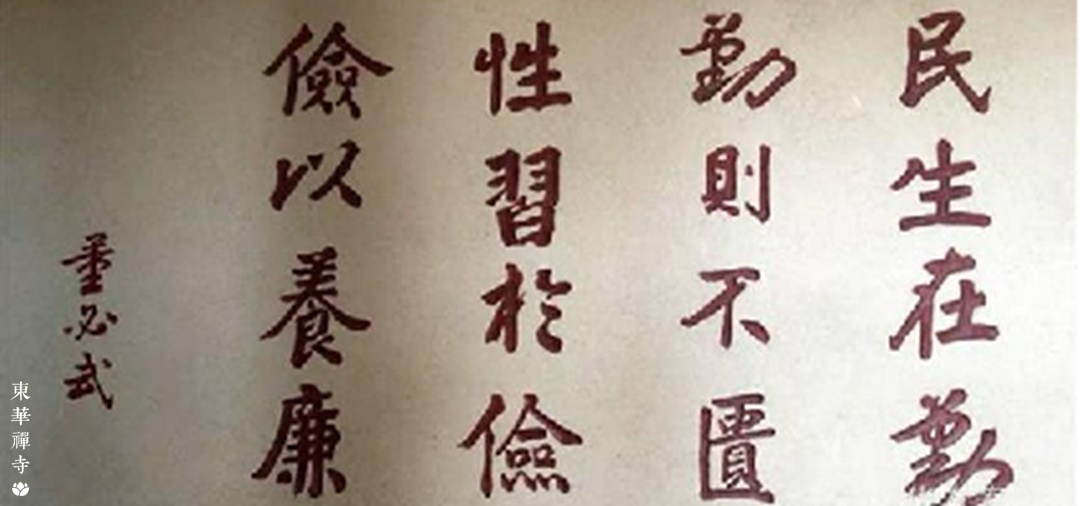 民生在勤
勤則不匱
性習於儉
儉以養廉
董必武
東華禪寺